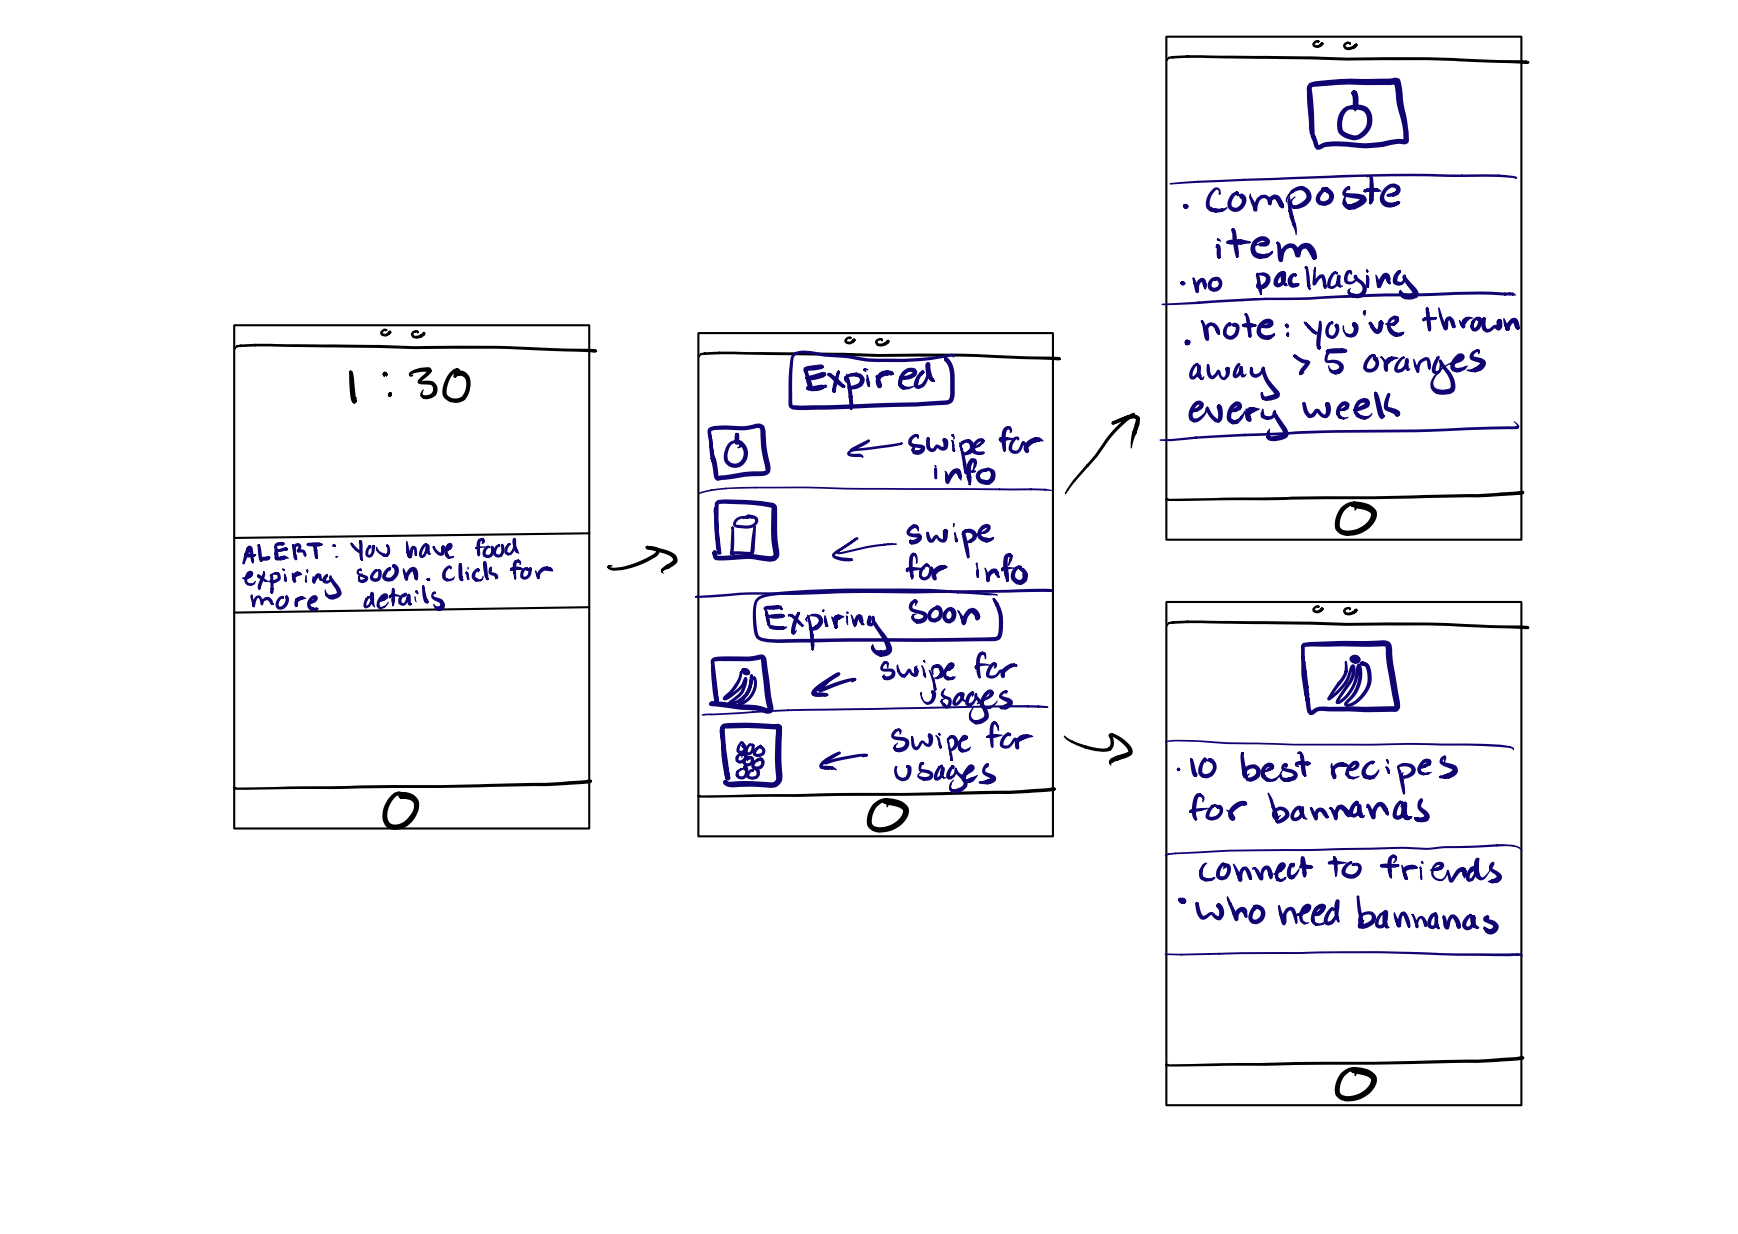 1:30
ALERT: You have food
expiring soon. Click for
more details
Expired
swipe for
info
swipe
for info
Expiring soon
swipe for
usages
swipe for
usages
. composte
item
. no pachaging
. note: you've thrown
away > 5 oranges
every week
. 10 best recipes
for bannanas
connect to friends
. who need bannanas